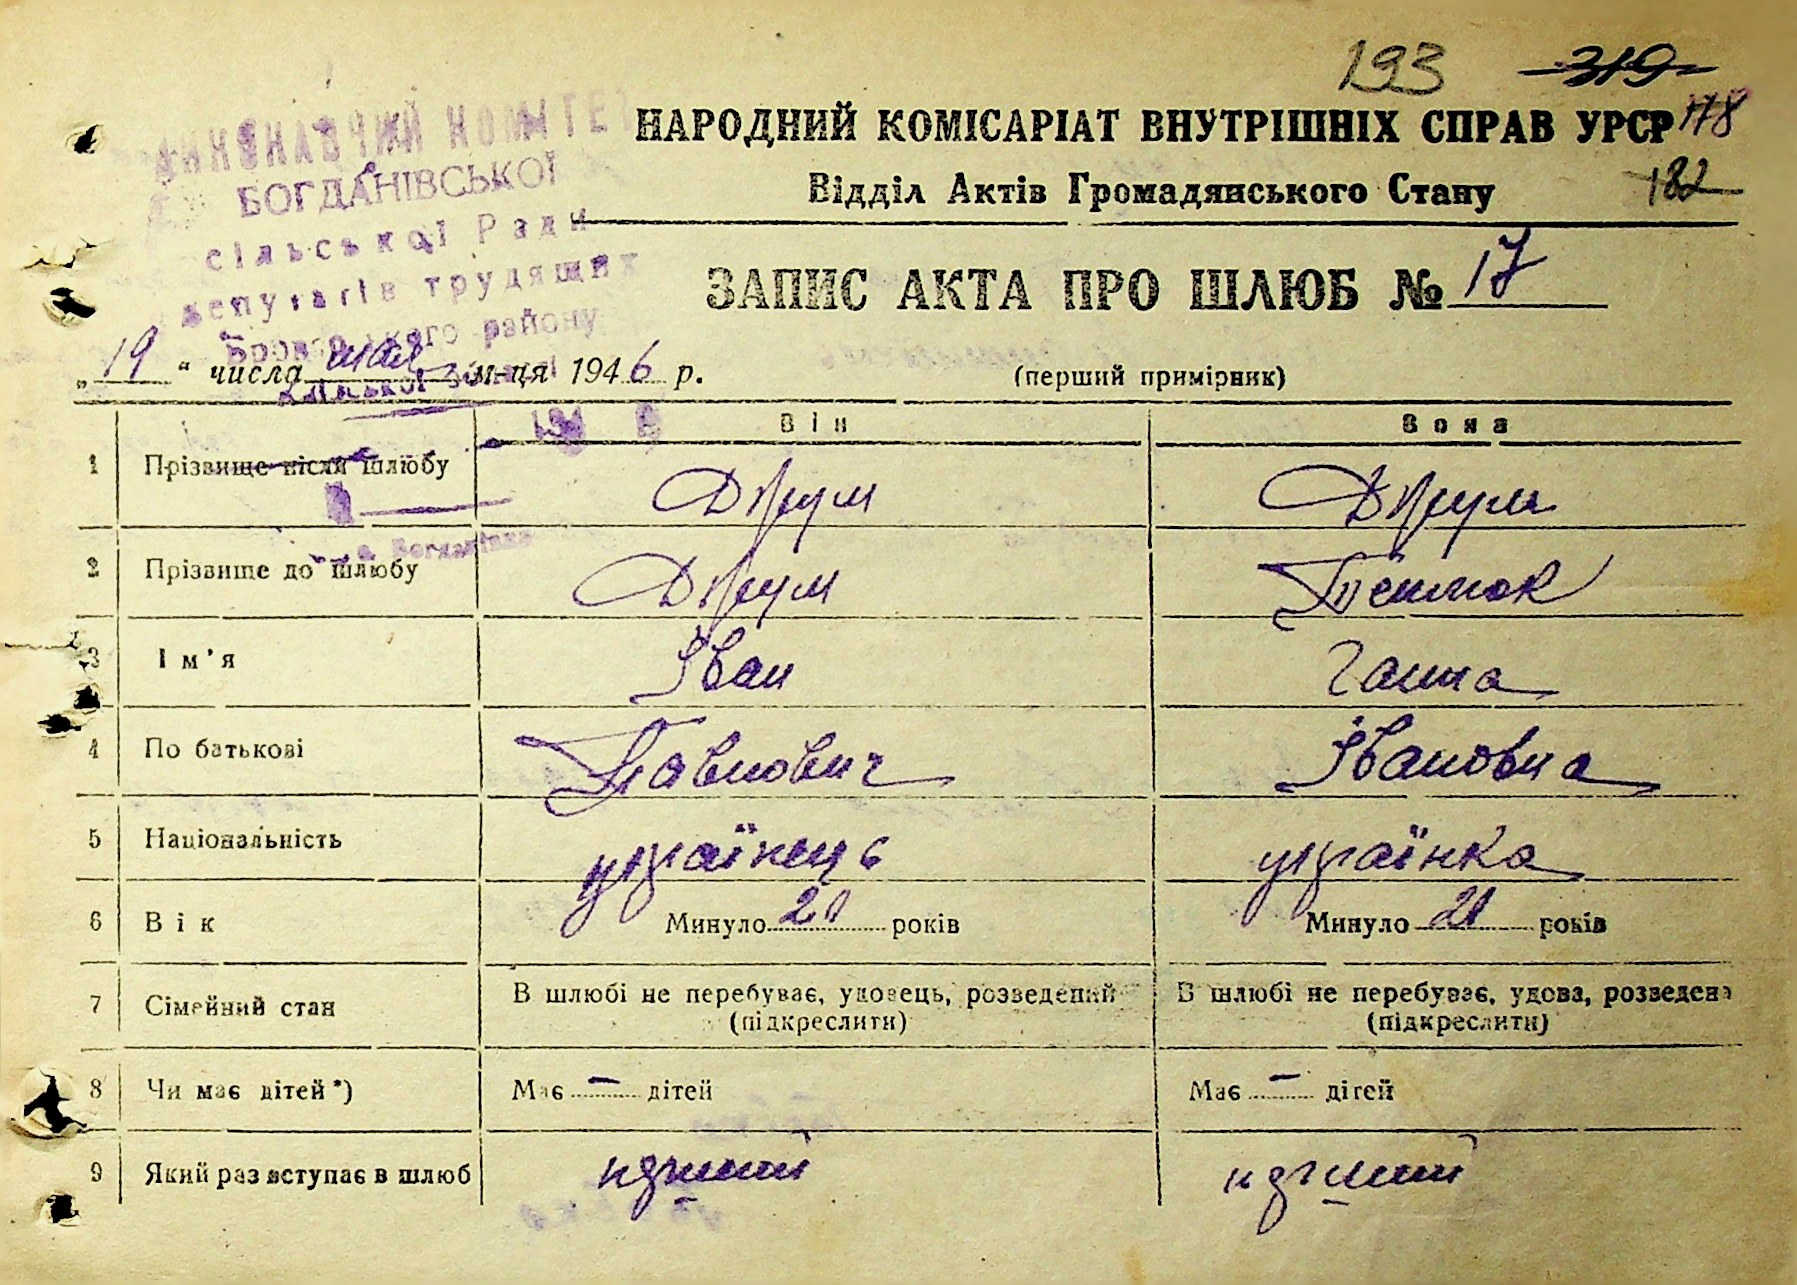 193 319
НАРОДНИЙ КОМІСАРІАТ ВНУТРІШНІХ СПРАВ УРСР 178
Відділ Актів Громадянського Стану 182
ВИКОНАВЧИЙ КОМІТЕТ
БОГДАНІВСЬКОЇ
сільської Ради
депутатів трудящих
району
194 р
с. Богданівка
ЗАПИС АКТА ПРО ШЛЮБ № 17
„ 19 “ числа мая м-ця 1946 р.
(перший примірник)
Він Вона
1 Прізвище після шлюбу Друм Друм
2 Прізвище до шлюбу Друм
3 Ім'я Іван Ганна
4 По батькові Павлович Івановна
5 Національність українець українка
6 Вік Минуло 20 років Минуло 21 років
7 Сімейний стан В шлюбі не перебуває, удовець, розведений (підкреслити) В шлюбі не перебуває, удова, розведена (підкреслити)
8 Чи має дітей*) Має – дітей Має – дітей
9 Який раз вступає в шлюб перший перший